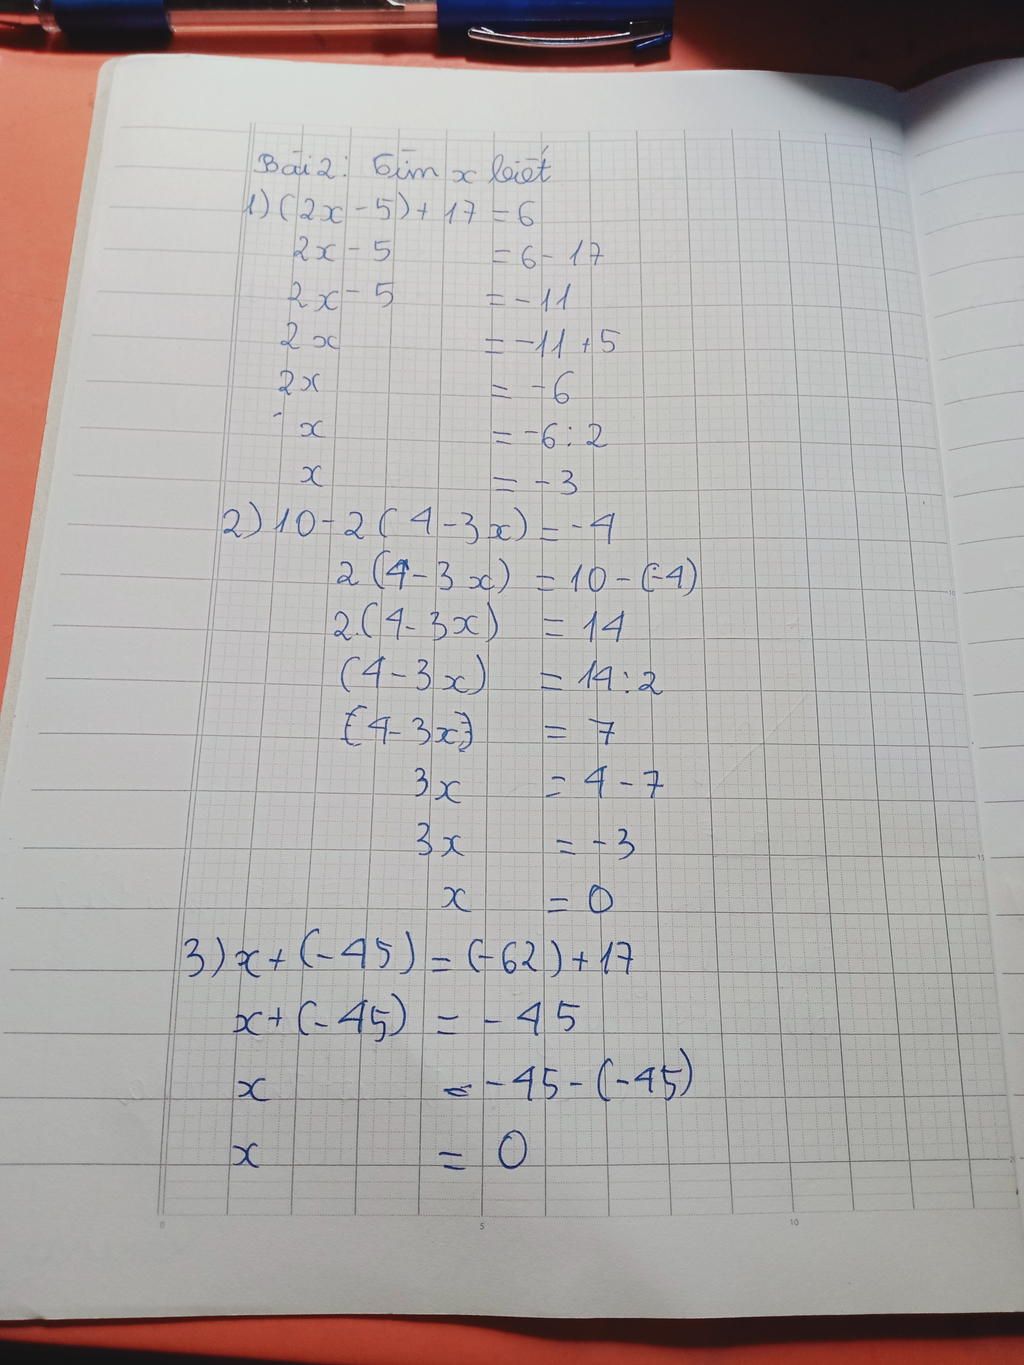 Bài 2: Tìm x biết
1) (2x - 5) + 17 = 6
2x - 5 = 6 - 17
2x - 5 = -11
2x = -11 + 5
2x = -6
x = -6 : 2
x = -3
2) 10 - 2 (4 - 3x) = -4
2 (4 - 3x) = 10 - (-4)
2.(4 - 3x) = 14
(4 - 3x) = 14 : 2
(4 - 3x) = 7
3x = 4 - 7
3x = -3
x = 0
3) x + (-45) = (-62) + 17
x + (-45) = -45
x = -45 - (-45)
x = 0
0 5 10